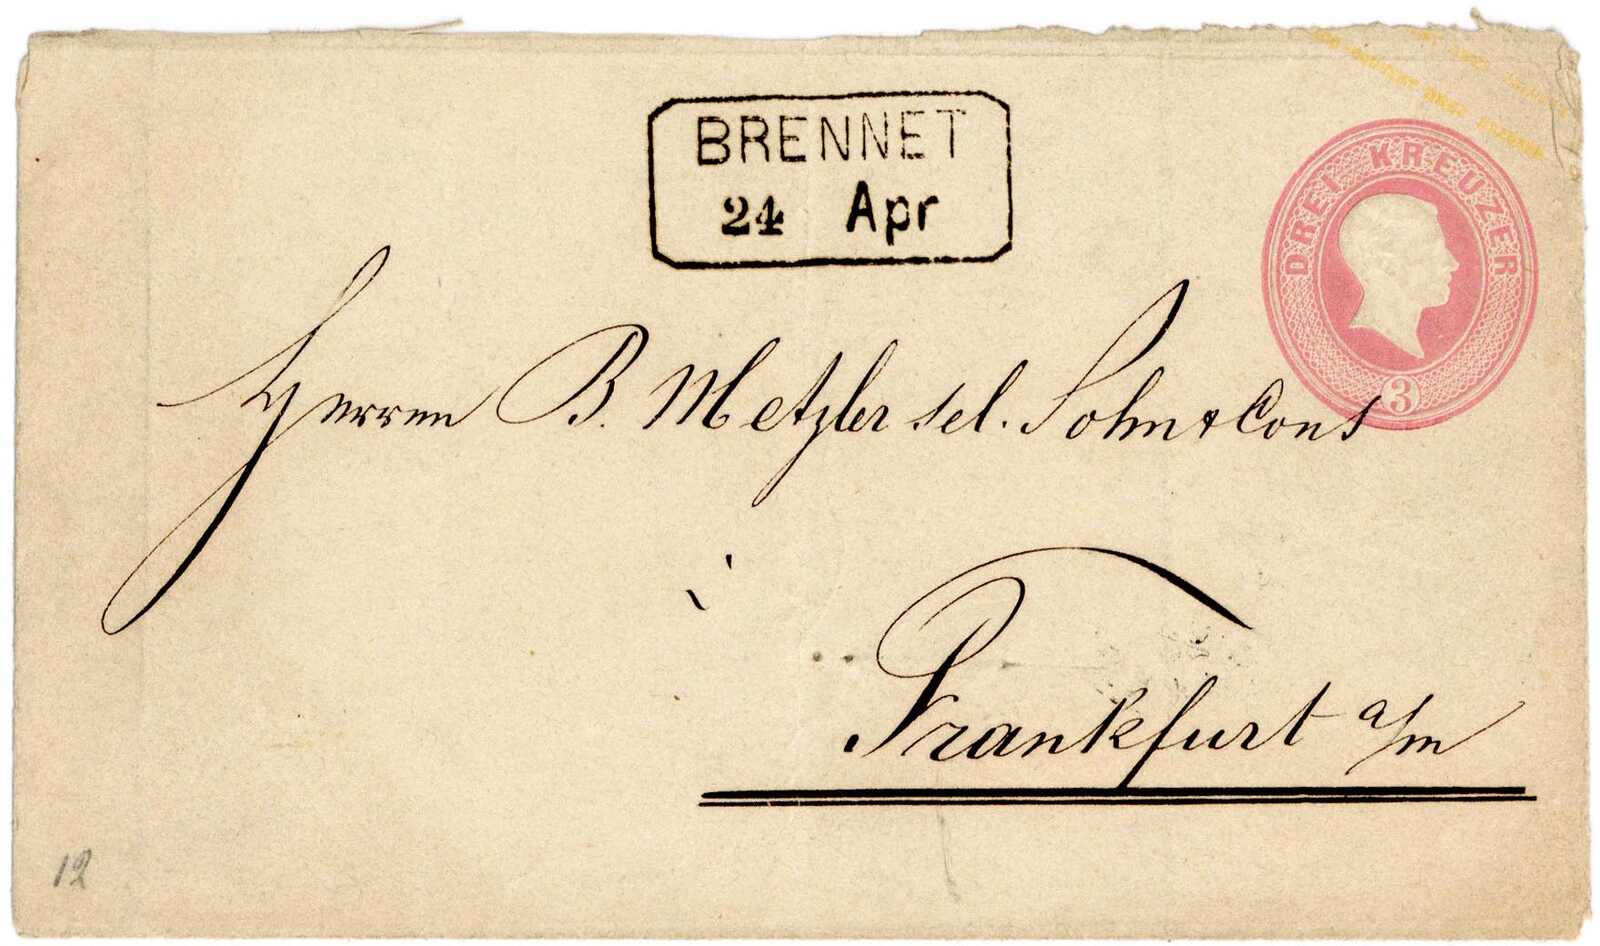 BRENNET
24 Apr
DREI KREUZER
3
Herren B. Metzler sel. Sohn & Cons
Frankfurt a/m
12